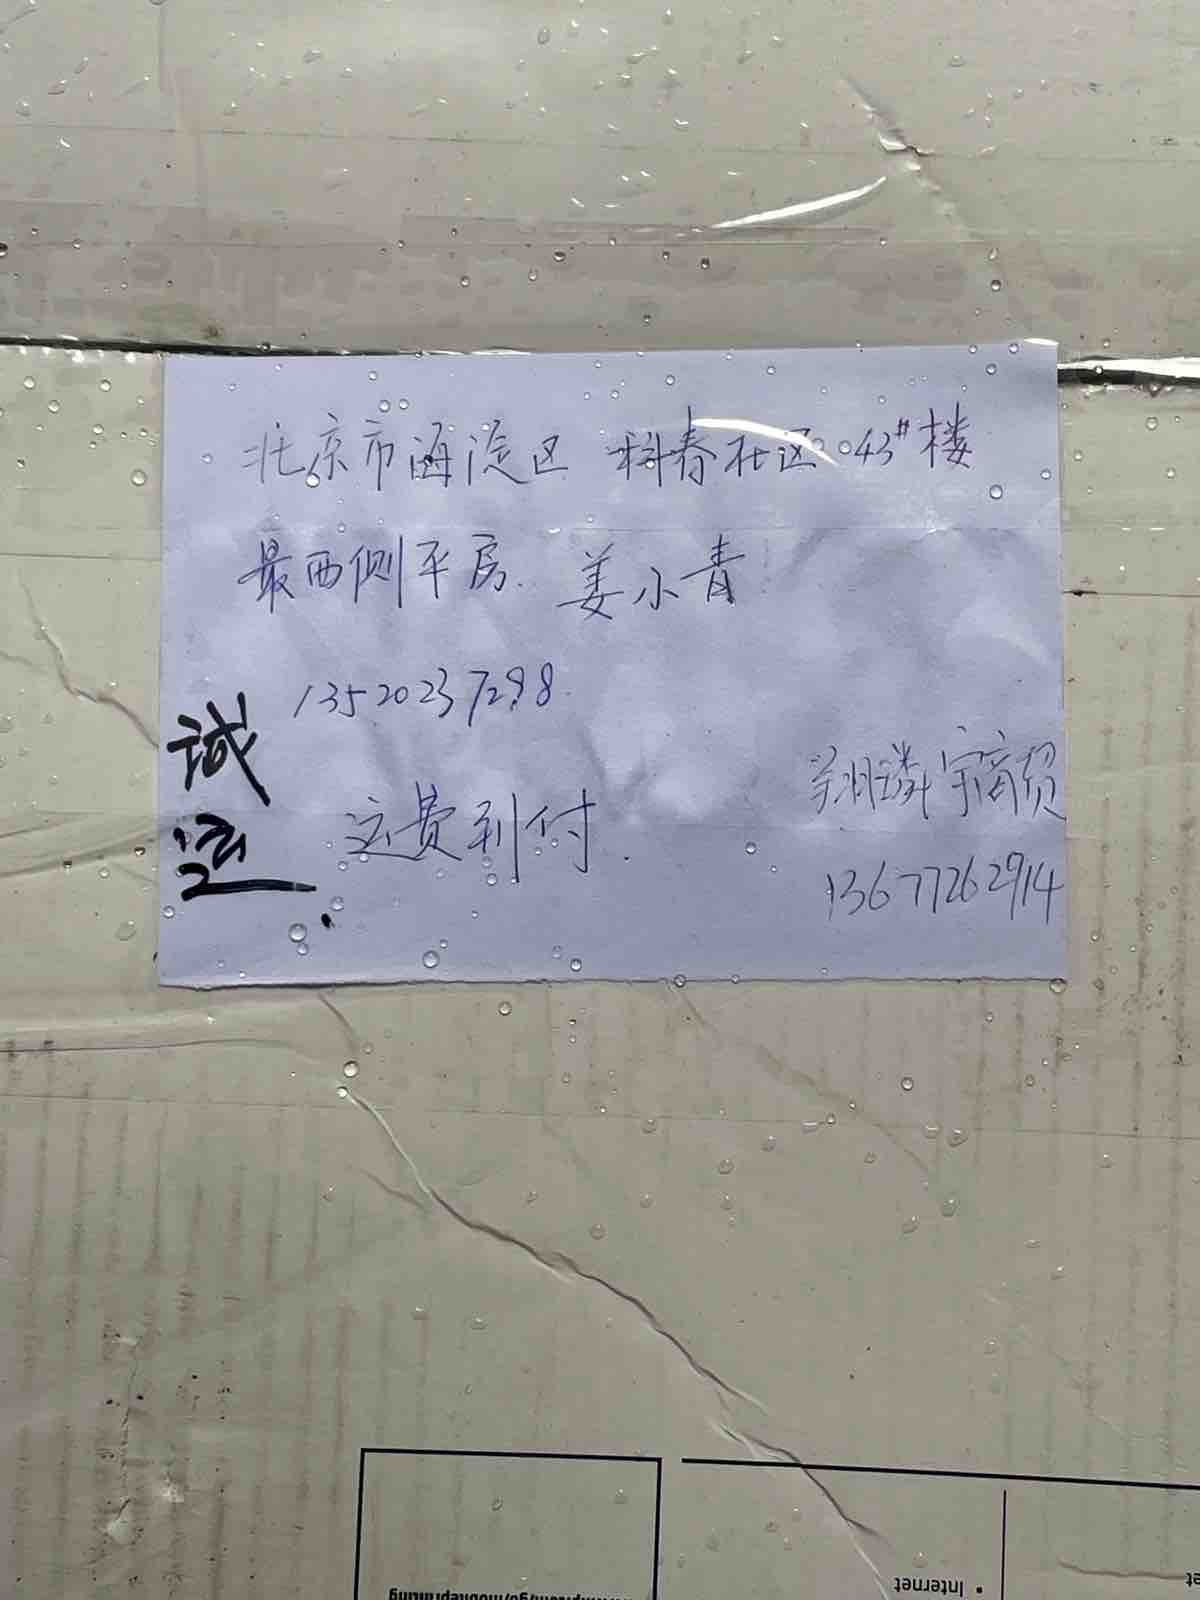 北京市海淀区 科春社区 43#楼
最西侧平房. 姜小青
13520237298
诚
运费到付.
翔璘宇商贸
13677262914
Internet